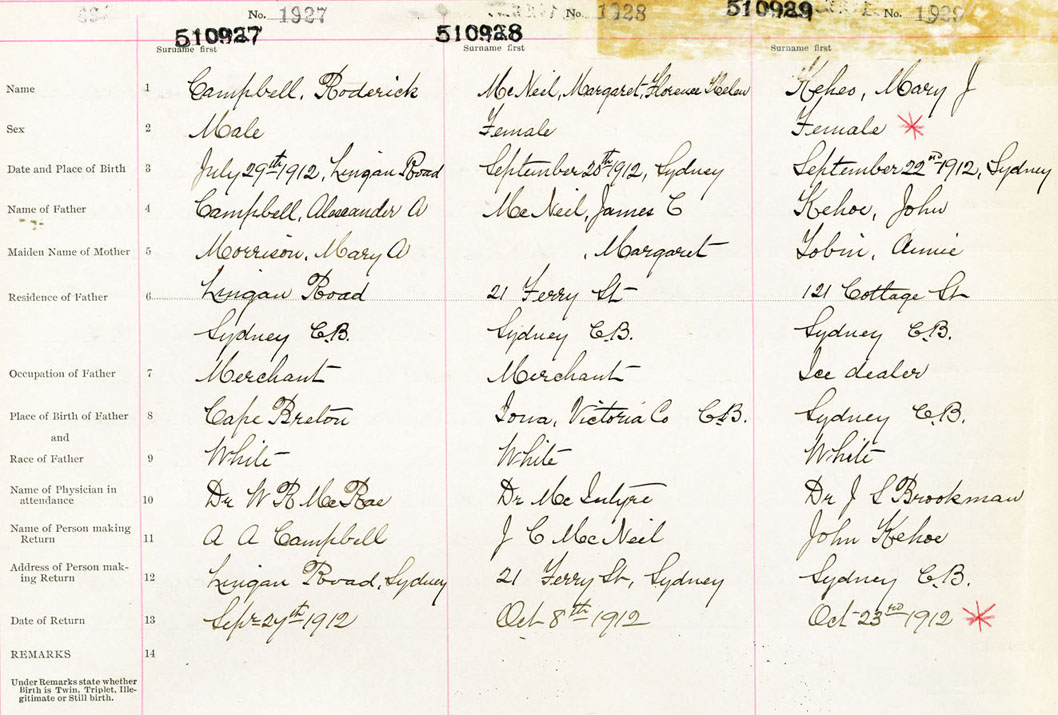 No. 1927 No. 1928 No. 1929
510927 510928 510929
Surname first Surname first Surname first
Name 1 Campbell, Roderick McNeil, Margaret, Florence Helen Kehoe, Mary J
Sex 2 Male Female Female
Date and Place of Birth 3 July 29th 1912, Lingan Road September 20th 1912, Sydney September 22nd 1912, Sydney
Name of Father 4 Campbell, Alexander A McNeil, James C Kehoe, John
Maiden Name of Mother 5 Morrison, Mary A , Margaret Tobin, Annie
Residence of Father 6 Lingan Road 21 Ferry St 121 Cottage St
Sydney C.B. Sydney C.B. Sydney C.B.
Occupation of Father 7 Merchant Merchant Ice dealer
Place of Birth of Father 8 Cape Breton Iona, Victoria Co C.B. Sydney C.B.
and
Race of Father 9 White White White
Name of Physician in
attendance 10 Dr W R McRae Dr McIntyre Dr J S Brookman
Name of Person making
Return 11 A A Campbell J C McNeil John Kehoe
Address of Person mak-
ing Return 12 Lingan Road, Sydney 21 Ferry St, Sydney Sydney C.B.
Date of Return 13 Sept 27th 1912 Oct 8th 1912 Oct 23rd 1912
REMARKS 14
Under Remarks state whether
Birth is Twin, Triplet, Ille-
gitimate or Still birth.